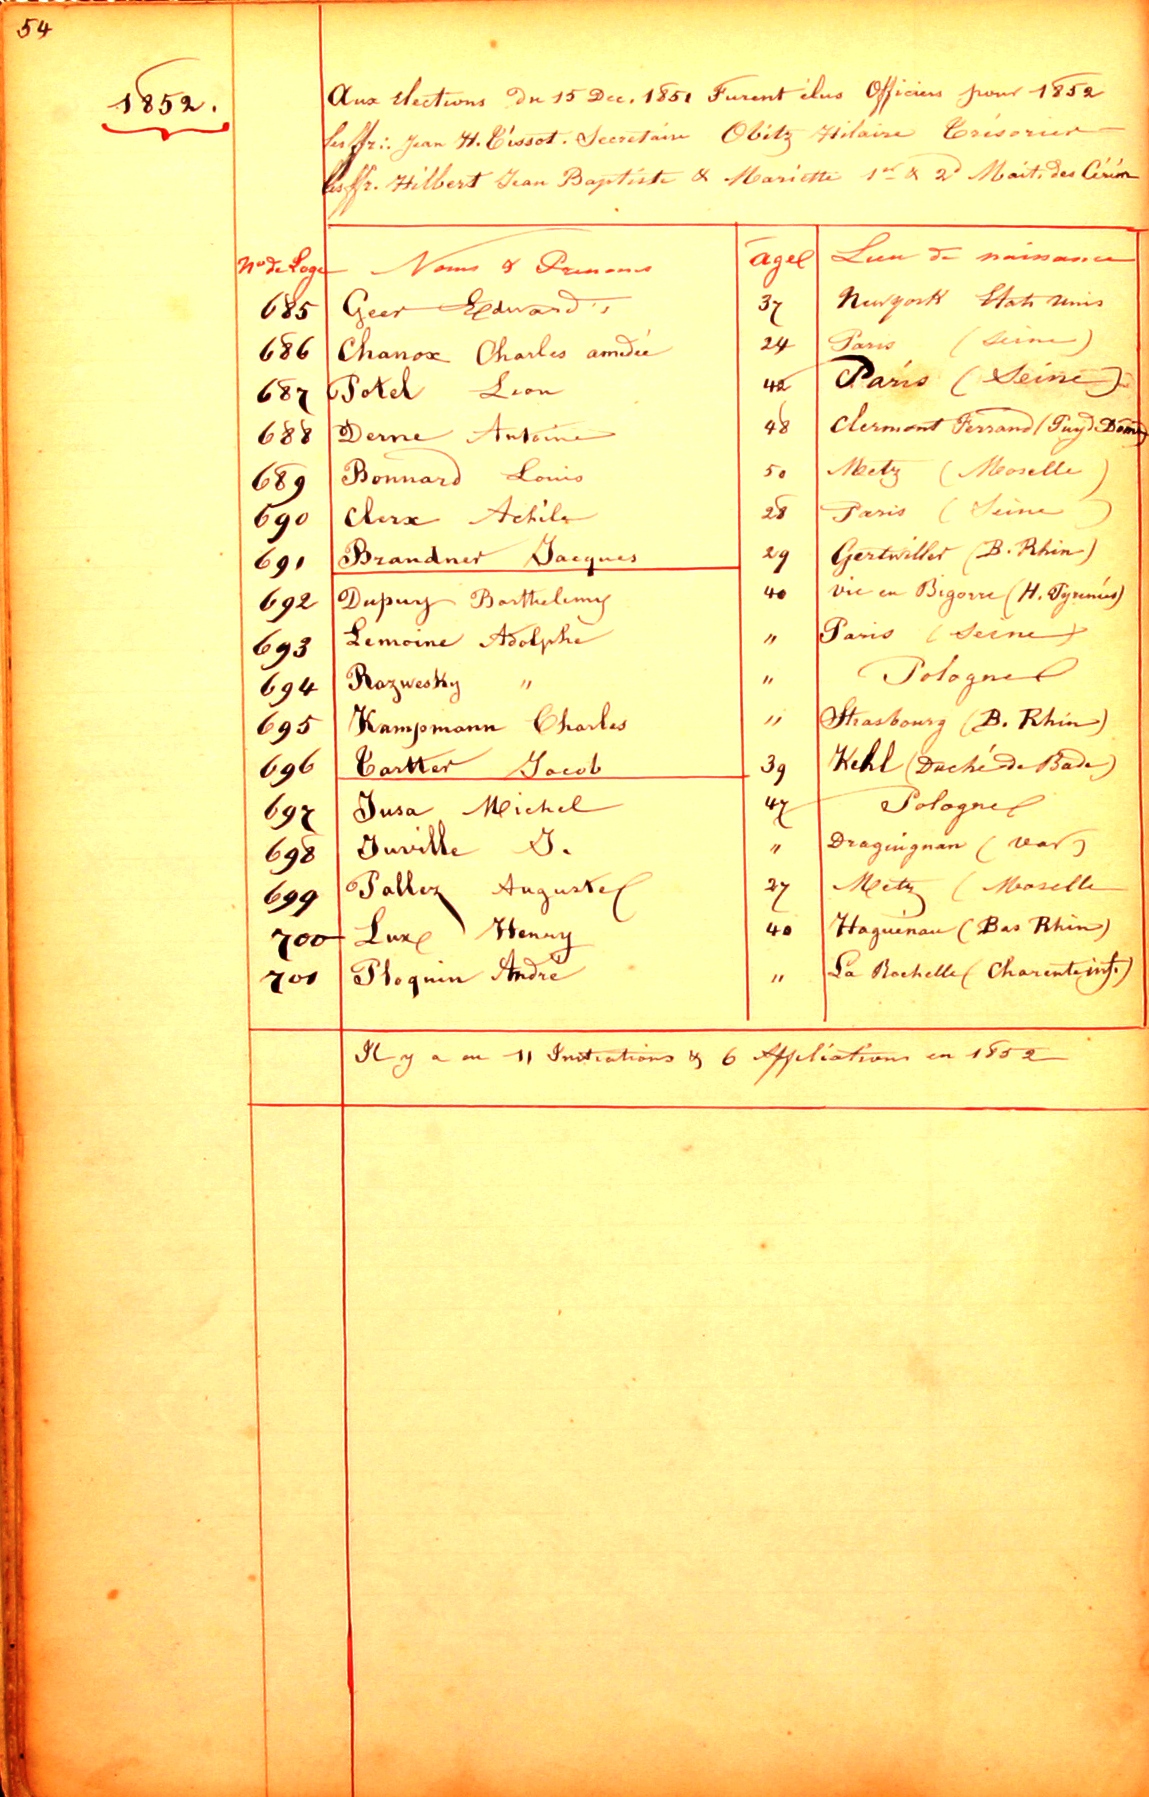 54
1852.
Aux élections du 15 Dec. 1851 Furent élus Officiers pour 1852
les ffr∴ Jean H. Tissot. Secretaire Obitz Hilaire Trésorier
les ffr. Hilbert Jean Baptiste & Mariette 1er & 2d Mait. des Cérém
No de Loge Noms & Prenoms age Lieu de naissance
685 Geer Edward's 37 Newyork Etats unis
686 Chanox Charles amedée 24 Paris (Seine)
687 Potel Leon 42 Paris (Seine)
688 Derne Antoine 48 Clermont Ferrand (Puy d. Dôme)
689 Bonnard Louis 50 Metz (Moselle)
690 Clerx Achile 28 Paris (Seine)
691 Brandner Jacques 29 Gertwiller (B. Rhin)
692 Dupuy Barthelemy 40 vic en Bigorre (H. Pyrenées)
693 Lemoine Adolphe " Paris (Seine)
694 Razwesky " " Pologne
695 Kampmann Charles " Strasbourg (B. Rhin)
696 Tartter Jacob 39 Kehl (Duché de Bade)
697 Jusa Michel 47 Pologne
698 Juville J. " Draguignan (Var)
699 Pallez Auguste 27 Metz (Moselle
700 Lux Henry 40 Haguénau (Bas Rhin)
701 Ploquin André " La Rochelle (Charente inf.)
Il y a eu 11 Initiations & 6 Affiliations en 1852